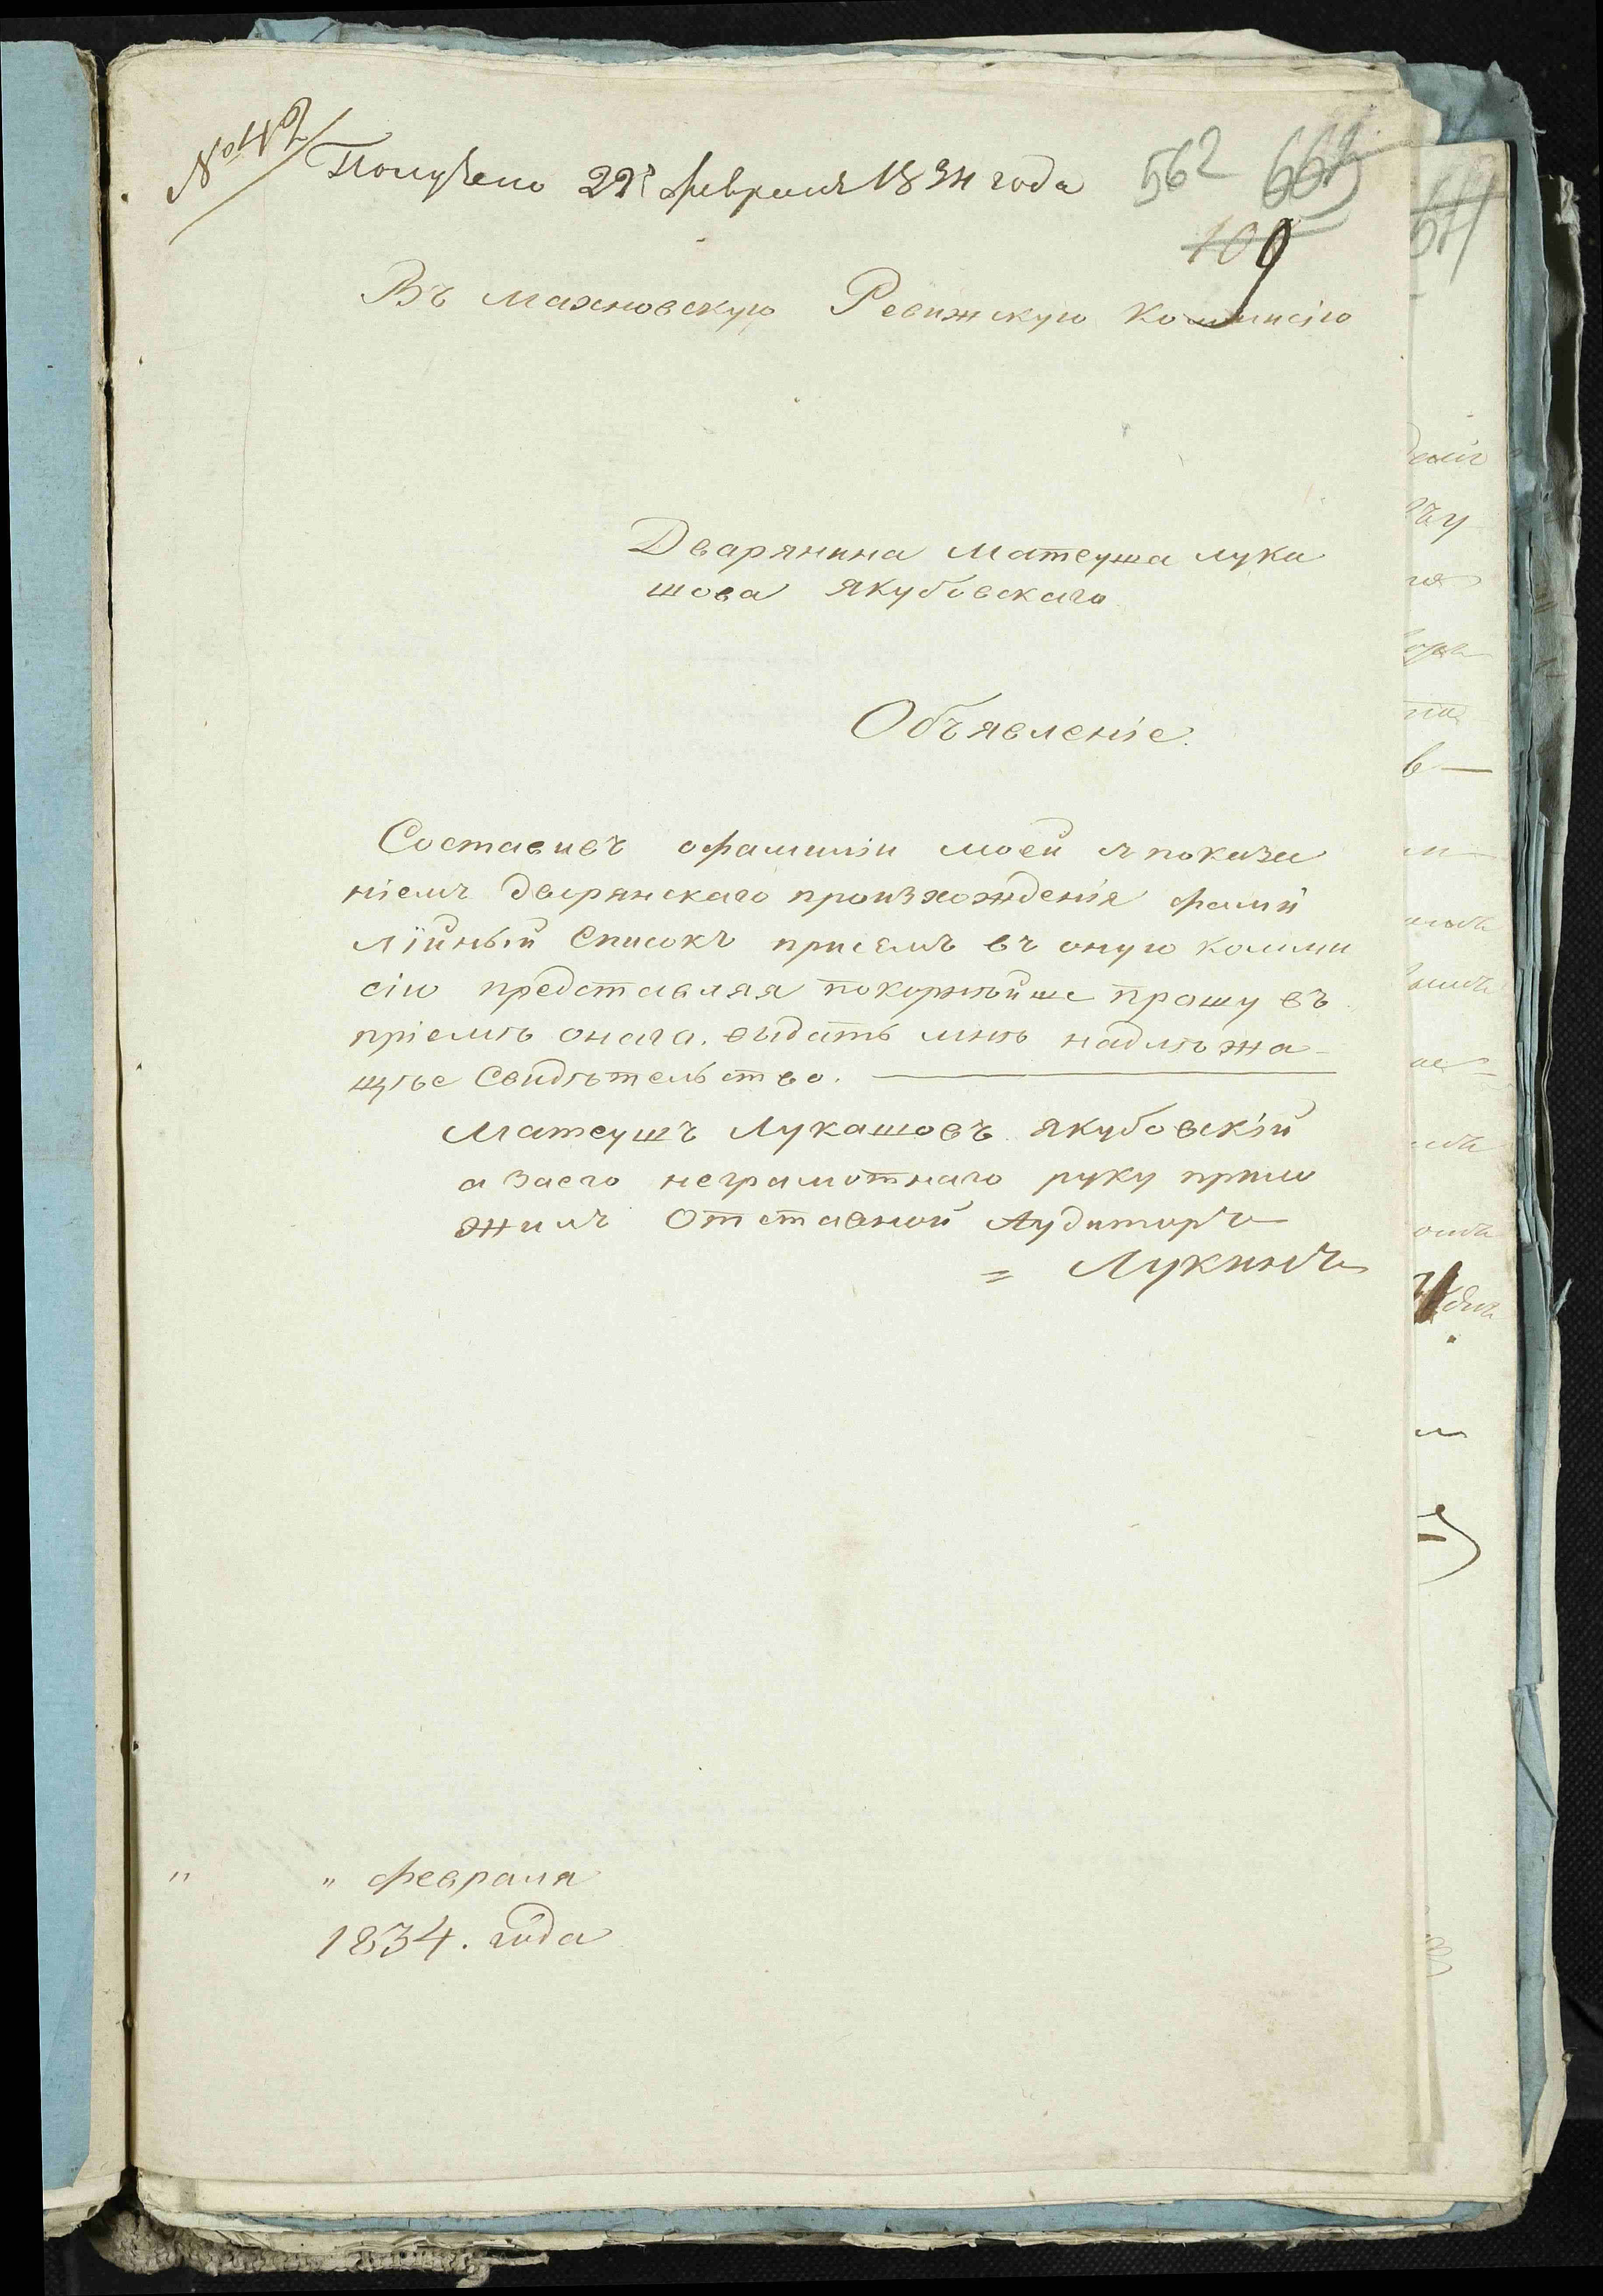 № 42
Получено 22г февраля 1834 года
562
109
Въ Махновскую Ревижскую Коммисію
Дварянина Матеуша Лука
шова Якубовскаго
Объявленіе.
Составивъ офамиліи моей споказа
ніемъ дварянскаго произхожденія фамий
лійный списокъ присемъ въ оную Комми
сію представляя покорнѣйше прошу въ
пріемѣ онага. выдать мнѣ надлѣжа-
щѣе свидѣтельство.
Матеушъ Лукашовъ Якубовскій
а заего неграмотнаго руку прило
жилъ Отставной Аудиторъ
= Лукинъ
" " февраля
1834. года